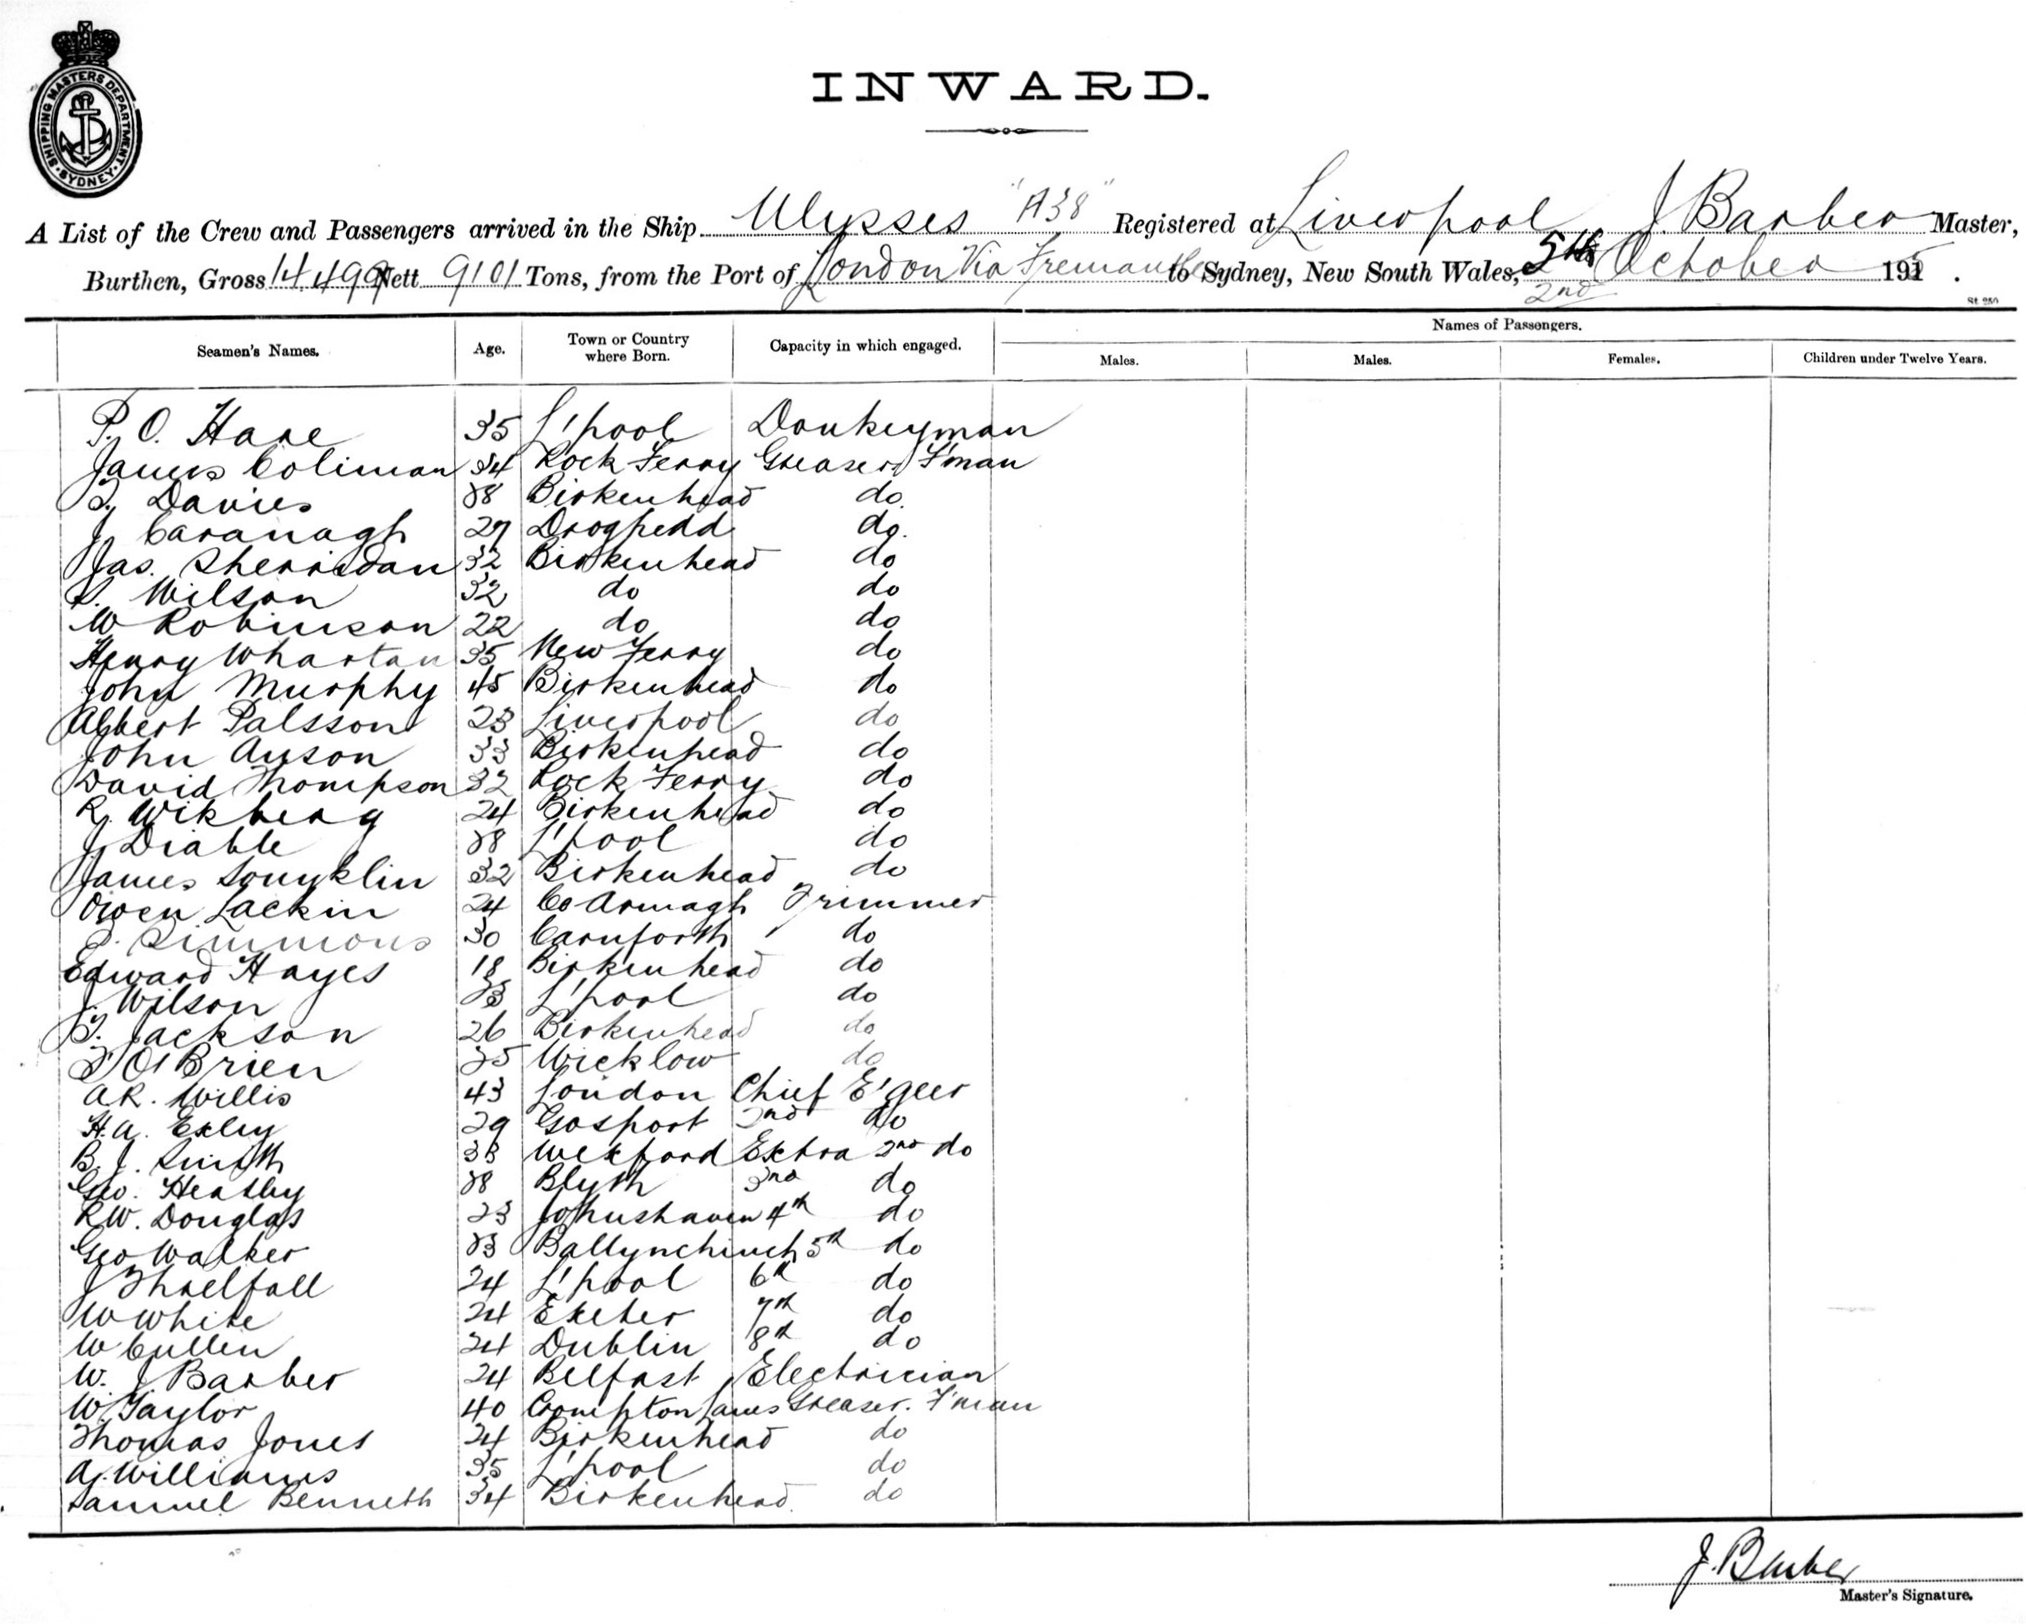 SHIPPING MASTERS DEPARTMENT
SYDNEY
INWARD.
A List of the Crew and Passengers arrived in the Ship Ulysses "A38" Registered at Liverpool J. Barber Master,
Burthen, Gross 14499 Nett 9101 Tons, from the Port of London Via Fremantle to Sydney, New South Wales, 5th October 1915.
2nd
St 250
Names of Passengers.
Seamen's Names. Age. Town or Country where Born. Capacity in which engaged. Males. Males. Females. Children under Twelve Years.
P. O. Hare 35 L'pool Donkeyman
James Coliman 34 Rock Ferry Greaser F'man
Davies 38 Birkenhead do.
J Cavanagh 27 Droghedd do.
Jas. Sherridan 32 Birkenhead do
Wilson 32 do do
W Robinson 22 do do
Henry Wharton 35 New Ferry do
John Murphy 45 Birkenhead do
Albert Palsson 23 Liverpool do
John Anson 33 Birkenhead do
David Thompson 32 Rock Ferry do
R. Wikberg 24 Birkenhead do
J Diable 38 L'pool do
James 32 Birkenhead do
Owen Lackin 24 Co Armagh Trimmer
Simmons 30 Carnforth do
Edward Hayes 18 Birkenhead do
J. Wilson L'pool do
Jackson 26 Birkenhead do
O'Brien 25 Wicklow do
A.R. Willis 43 London Chief E'geer
H.A. Exley 29 Gosport 2nd do
B. J. Smith 33 Wexford Extra 2nd do
Geo. Heatley 38 Blyth 3rd do
R.W. Douglas 23 Johnshaven 4th do
Geo Walker 33 Ballynchinch 5th do
J Threlfall 24 L'pool 6th do
W White 24 Exeter 7th do
W Cullen 24 Dublin 8th do
W. J Barber 24 Belfast Electrician
W. Taylor 40 Crompton Lancs Greaser. F'man
Thomas Jones 24 Birkenhead do
A. Williams 35 L'pool do
Samuel Bennett 34 Birkenhead. do
J. Barber
Master's Signature.